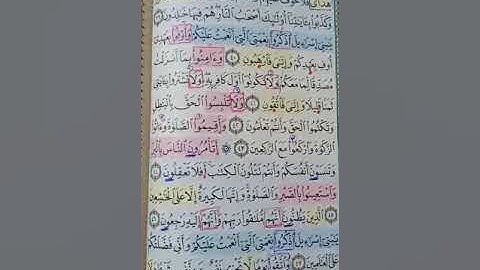 هُدَاىَ فَلَا خَوْفٌ عَلَيْهِمْ
وَكَذَّبُوا۟ بِـَٔايَـٰتِنَآ أُو۟لَـٰٓئِكَ أَصْحَـٰبُ ٱلنَّارِ هُمْ فِيهَا خَـٰلِدُونَ ٣٩
يَـٰبَنِىٓ إِسْرَٰٓءِيلَ ٱذْكُرُوا۟ نِعْمَتِىَ ٱلَّتِىٓ أَنْعَمْتُ عَلَيْكُمْ وَأَوْفُوا۟ بِعَهْدِىٓ
أُوفِ بِعَهْدِكُمْ وَإِيَّـٰىَ فَٱرْهَبُونِ ٤٠ وَءَامِنُوا۟ بِمَآ أَنزَلْتُ
مُصَدِّقًا لِّمَا مَعَكُمْ وَلَا تَكُونُوٓا۟ أَوَّلَ كَافِرٍۭ بِهِۦ وَلَا تَشْتَرُوا۟ بِـَٔايَـٰتِى
ثَمَنًا قَلِيلًا وَإِيَّـٰىَ فَٱتَّقُونِ ٤١ وَلَا تَلْبِسُوا۟ ٱلْحَقَّ بِٱلْبَـٰطِلِ
وَتَكْتُمُوا۟ ٱلْحَقَّ وَأَنتُمْ تَعْلَمُونَ ٤٢ وَأَقِيمُوا۟ ٱلصَّلَوٰةَ وَءَاتُوا۟
ٱلزَّكَوٰةَ وَٱرْكَعُوا۟ مَعَ ٱلرَّٰكِعِينَ ٤٣ ۞ أَتَأْمُرُونَ ٱلنَّاسَ بِٱلْبِرِّ
وَتَنسَوْنَ أَنفُسَكُمْ وَأَنتُمْ تَتْلُونَ ٱلْكِتَـٰبَ أَفَلَا تَعْقِلُونَ ٤٤
وَٱسْتَعِينُوا۟ بِٱلصَّبْرِ وَٱلصَّلَوٰةِ وَإِنَّهَا لَكَبِيرَةٌ إِلَّا عَلَى ٱلْخَـٰشِعِينَ
٤٥ ٱلَّذِينَ يَظُنُّونَ أَنَّهُم مُّلَـٰقُوا۟ رَبِّهِمْ وَأَنَّهُمْ إِلَيْهِ رَٰجِعُونَ ٤٦
يَـٰبَنِىٓ إِسْرَٰٓءِيلَ ٱذْكُرُوا۟ نِعْمَتِىَ ٱلَّتِىٓ أَنْعَمْتُ عَلَيْكُمْ وَأَنِّى فَضَّلْتُكُمْ
عَلَى ٱلْعَـٰلَمِينَ ٤٧ وَٱتَّقُوا۟ يَوْمًا لَّا تَجْزِى نَفْسٌ عَن نَّفْسٍ